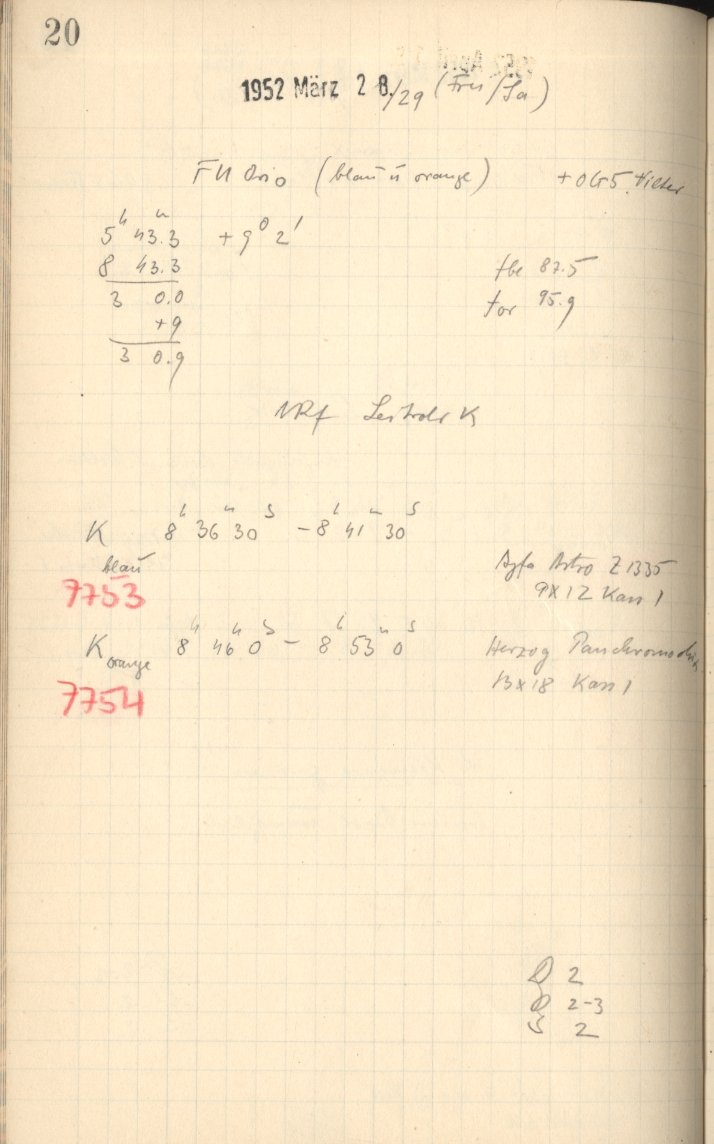 20
1952 März 28./29 (Frei/Sa)
FU Orio (blau u orange) + OG5 Filter
5h 43.3m + 9° 2'
8 43.3
3 0.0
+9
3 0.9
fbl 87.5
for 95.9
NRf Leitrohr K
K 8h 36m 30s - 8h 41m 30s
blau
7753
Agfa Astro Z 1335
9x12 Kass 1
K orange 8h 46m 0s - 8h 53m 0s
7754
Herzog Panchromo
13x18 Kass 1
2
2-3
S 2